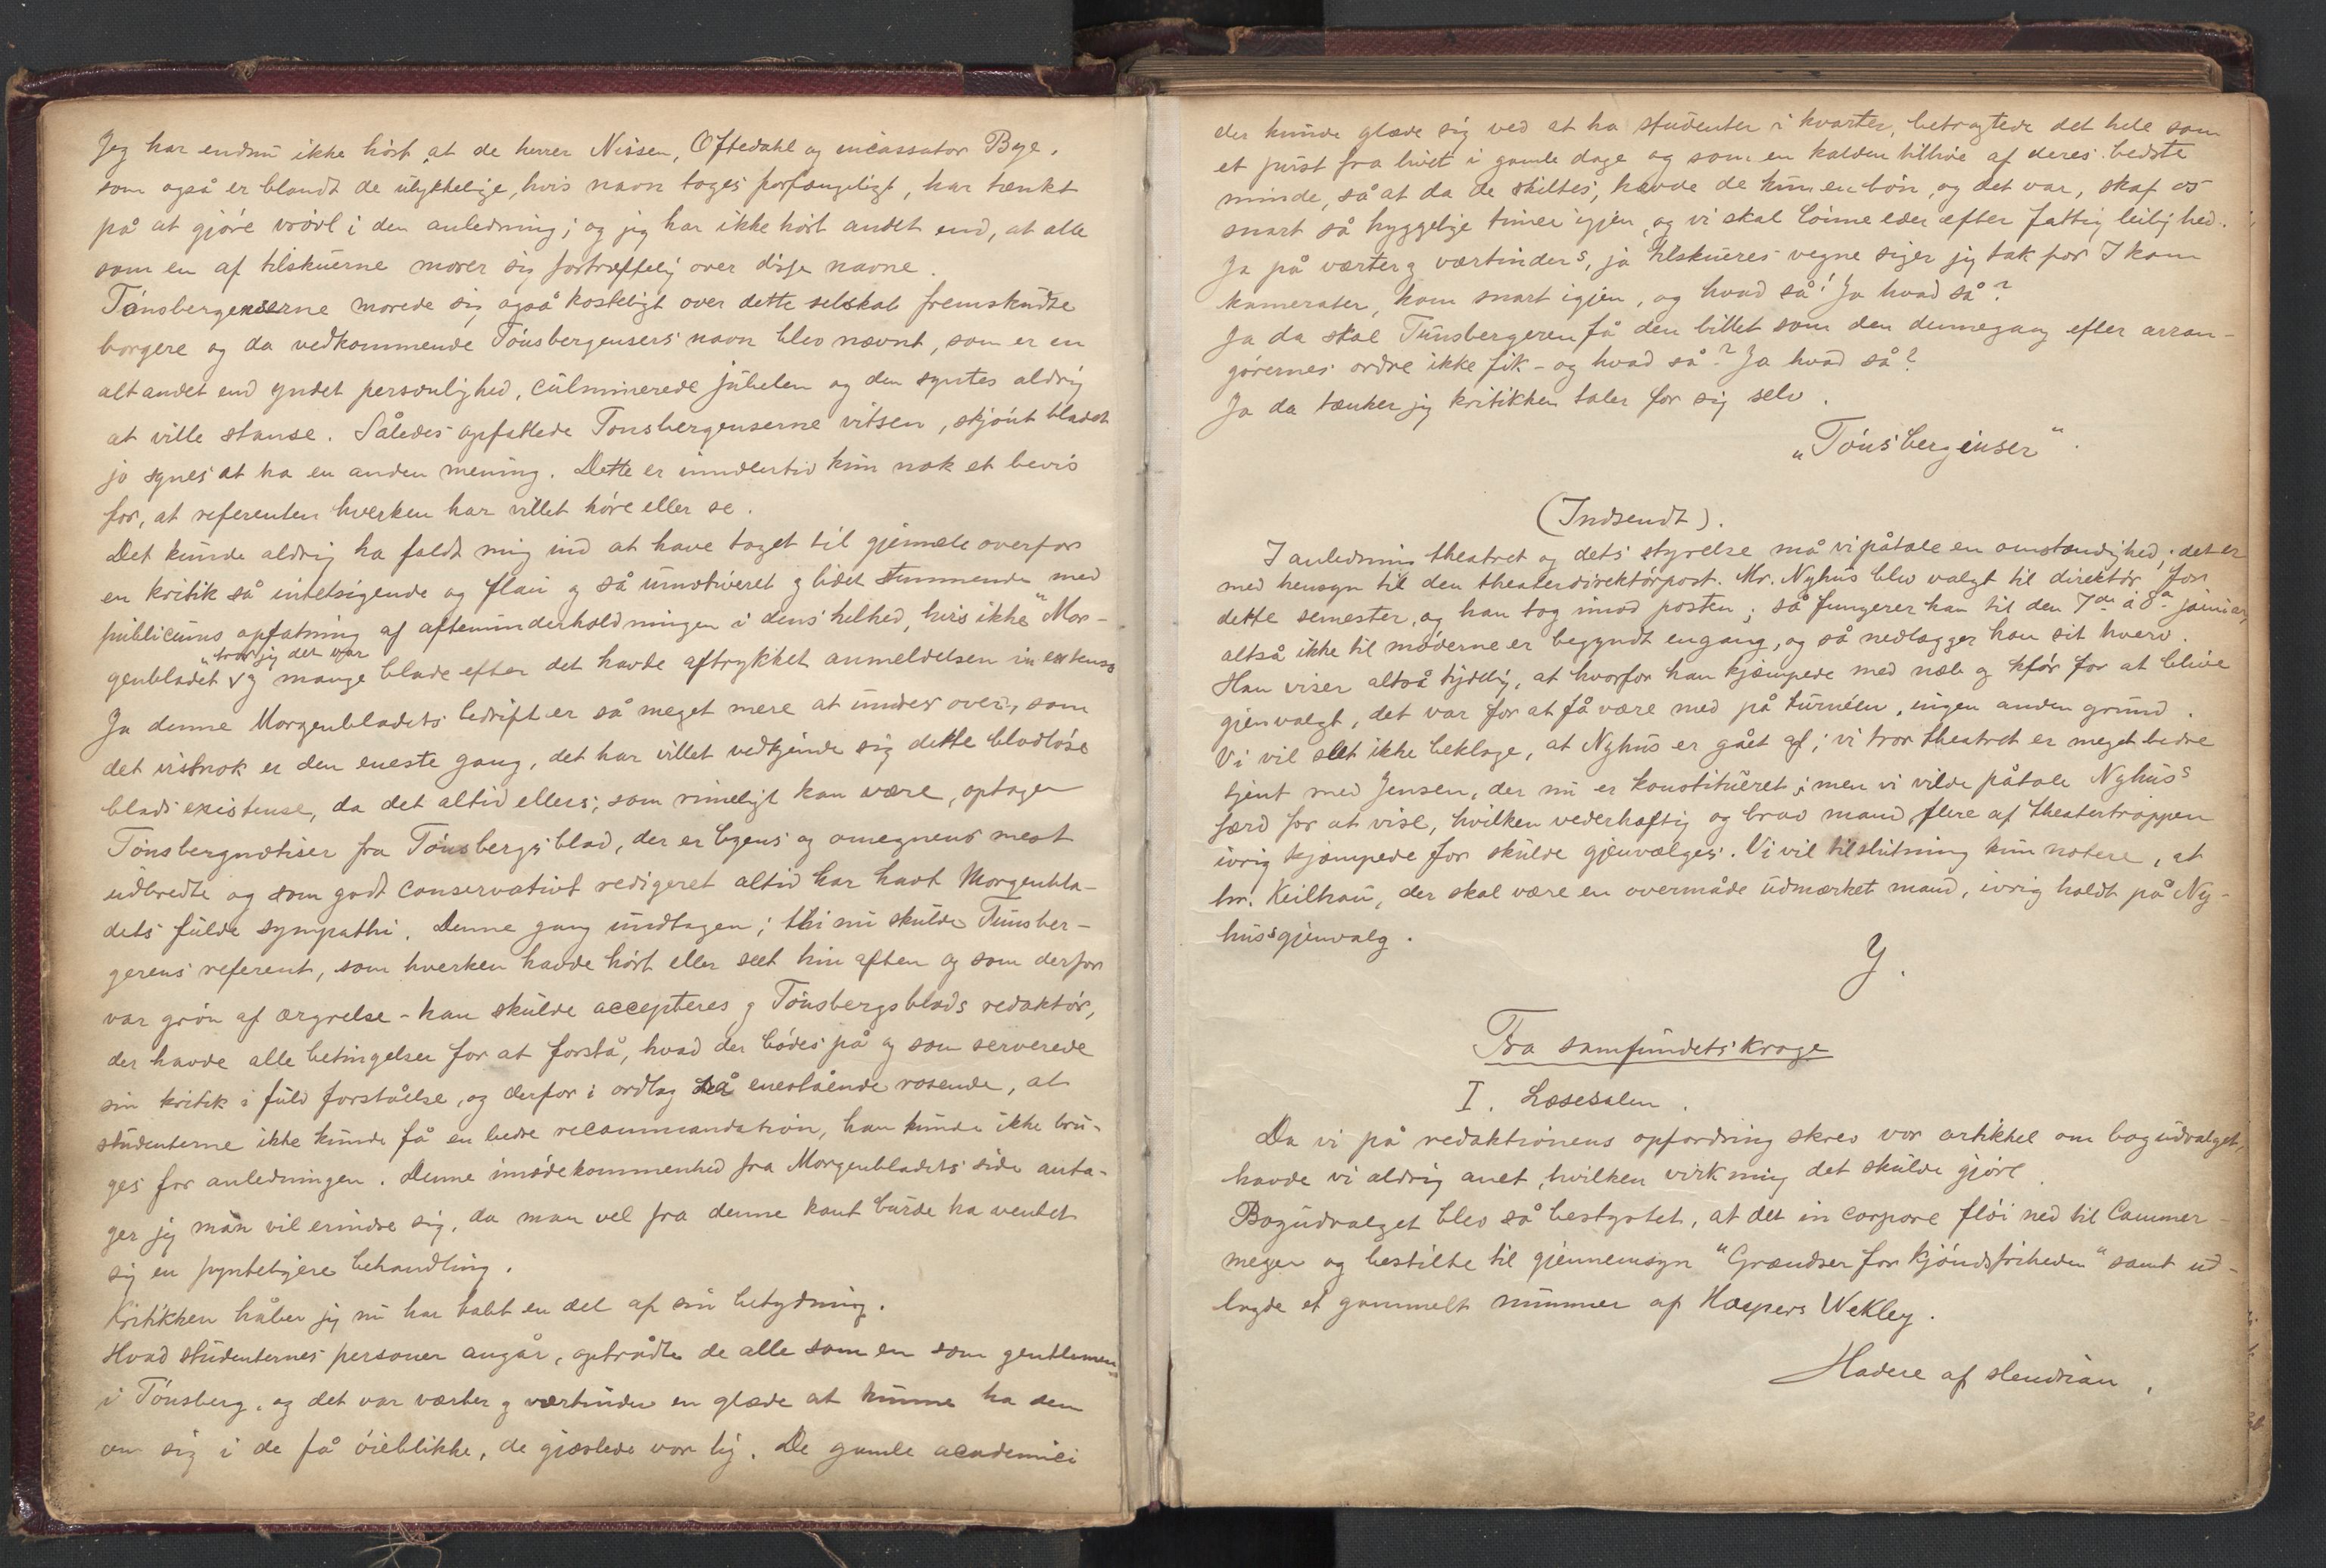 Jeg har endnu ikke hört at de herrer Nissen, Oftedahl og incassator Bye,
som også er blandt de ulykkelige, hvis navn toges forfængeligt, har tænkt
på at gjöre vrövl i den anledning; og jeg har ikke hört andet end, at alle
som en af tilskuerne morer sig fortræffelig over disse navne.
Tönsbergenserne morede sig også kosteligt over dette selskab fremskudte
borgere og da vedkommende Tönsbergensers navn blev nævnt, som er en
alt andet end yndet personlighed, culminerede jubelen og den syntes aldrig
at ville stanse. Således opfattede Tönsbergenserne vitsen, skjönt bladet
jo synes at ha en anden mening. Dette er imidlertid kun nok et bevis
for, at referenten hverken har villet höre eller se.
Det kunde aldrig ha faldt mig ind at have taget til gjenmæle overfor
en kritik så intetsigende og flau og så umotiveret og lidet stemmende med
publicums opfatning af aftenunderholdningen i dens helhed, hvis ikke "Mor-
genbladet" tror jeg det var og mange blade efter det havde aftrykket anmeldelsen in extenso
Ja denne Morgenbladets bedrift er så meget mere at undres over, som
det vistnok er den eneste gang, det har villet vedkjende sig dette blodlöse
blads existense, da det altid ellers, som rimeligt kan være, optager
Tönsbergnotiser fra Tönsbergs blad, der er byens og omegnens mest
udbredte og som godt conservativt redigeret altid har havt Morgenbla-
dets fulde sympathi. Denne gang undtagen; thi nu skulde Tunsber-
gerens referent, som hverken havde hört eller seet hin aften og som derfor
var grön af ærgrelse - han skulde accepteres og Tönsbergsblads redaktör,
der havde alle betingelser for at forstå, hvad der bödes på og som serverede
sin kritik i fuld forståelse, og derfor i ordlag så enestående rosende, at
studenterne ikke kunde få en bedre recommandation, han kunde ikke bru-
ges for anledningen. Denne imödekommenhed fra Morgenbladets side anta-
ger jeg man vil erindre sig, da man vel fra denne kant burde ha ventet
sig en pynteligere behandling.
Kritikken håber jeg nu har tabt en del af sin betydning.
Hvad studenternes personer angår, optrådte de alle som en som gentlemen
i Tönsberg, og det var værter og værtinder en glæde at kunne ha dem
om sig i de få öieblikke, de gjæstede vor by. De gamle academici
der kunde glæde sig ved at ha studenter i kvarter, betragtede det hele som
et pust fra livet i gamle dage og som en kalden tillive af deres bedste
minde, så at da de skiltes, havde de kun en bön, og det var, skaf os
snart så hyggelige timer igjen, og vi skal lönne eder efter fattig leilighed.
Ja på værter og værtinders, ja tilskueres vegne siger jeg tak for I kom
kamerater, kom snart igjen, og hvad så! Ja hvad så?
Ja da skal Tunsbergeren få den billet som den dennegang efter arran-
görernes ordre ikke fik - og hvad så? Ja hvad så?
Ja da tænker jeg kritikken taler for sig selv.
„Tönsbergenser“.
(Indsendt).
I anledning theatret og dets styrelse må vi påtale en omstændighed; det er
med hensyn til den theaterdirektörpost. Mr. Nyhus blev valgt til direktör for
dette semester, og han tog imod posten; så fungerer han til den 7de à 8de januar,
altså ikke til möderne er begyndt engang, og så nedlægger han sit hverv.
Han viser altså tydelig, at hvorfor han kjæmpede med næb og klör for at blive
gjenvalgt, det var for at få være med på turnéen, ingen anden grund.
Vi vil slet ikke beklage, at Nyhus er gået af; vi tror theatret er meget bedre
tjent med Jensen, der nu er konstitueret; men vi vilde påtale Nyhus's
færd for at vise, hvilken vederhæftig og brav mand flere af theatertroppen
ivrig kjæmpede for skulde gjenvælges. Vi vil tilslutning kun notere, at
hr. Keilhau, der skal være en overmåde udmærket mand, ivrig holdt på Ny-
hus's gjenvalg.
Y.
Fra samfundets krage
I. Læsesalen.
Da vi på redaktionens opfordring skrev vor artikkel om bogudvalget,
havde vi aldrig anet, hvilken virkning det skulde gjöre.
Bogudvalget blev så bestyrtet, at det in corpore flöi ned til Cammer-
meyer og bestilte til gjennemsyn "Grændser for kjöndsfriheden" samt ud-
lagde et gammelt nummer af Harpers Wekley.